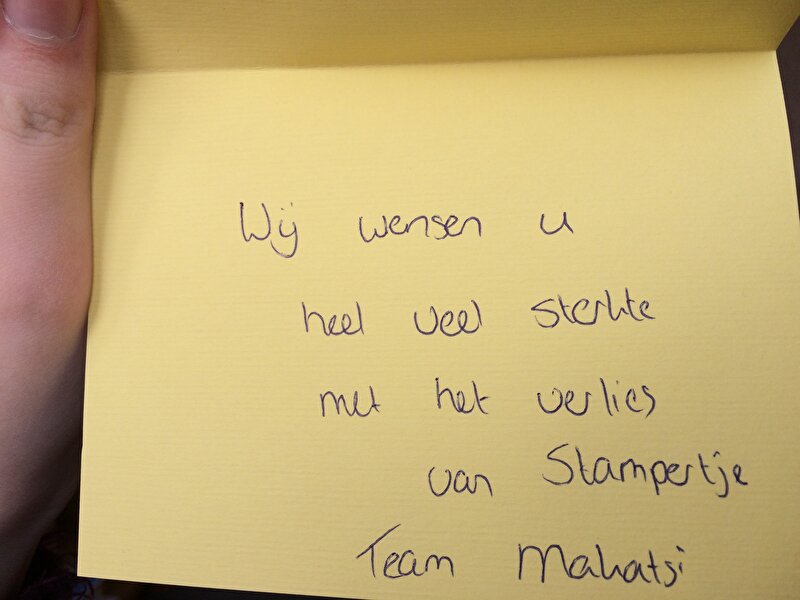 Wij wensen u
heel veel sterkte
met het verlies
van Stampertje
Team Mahatsi